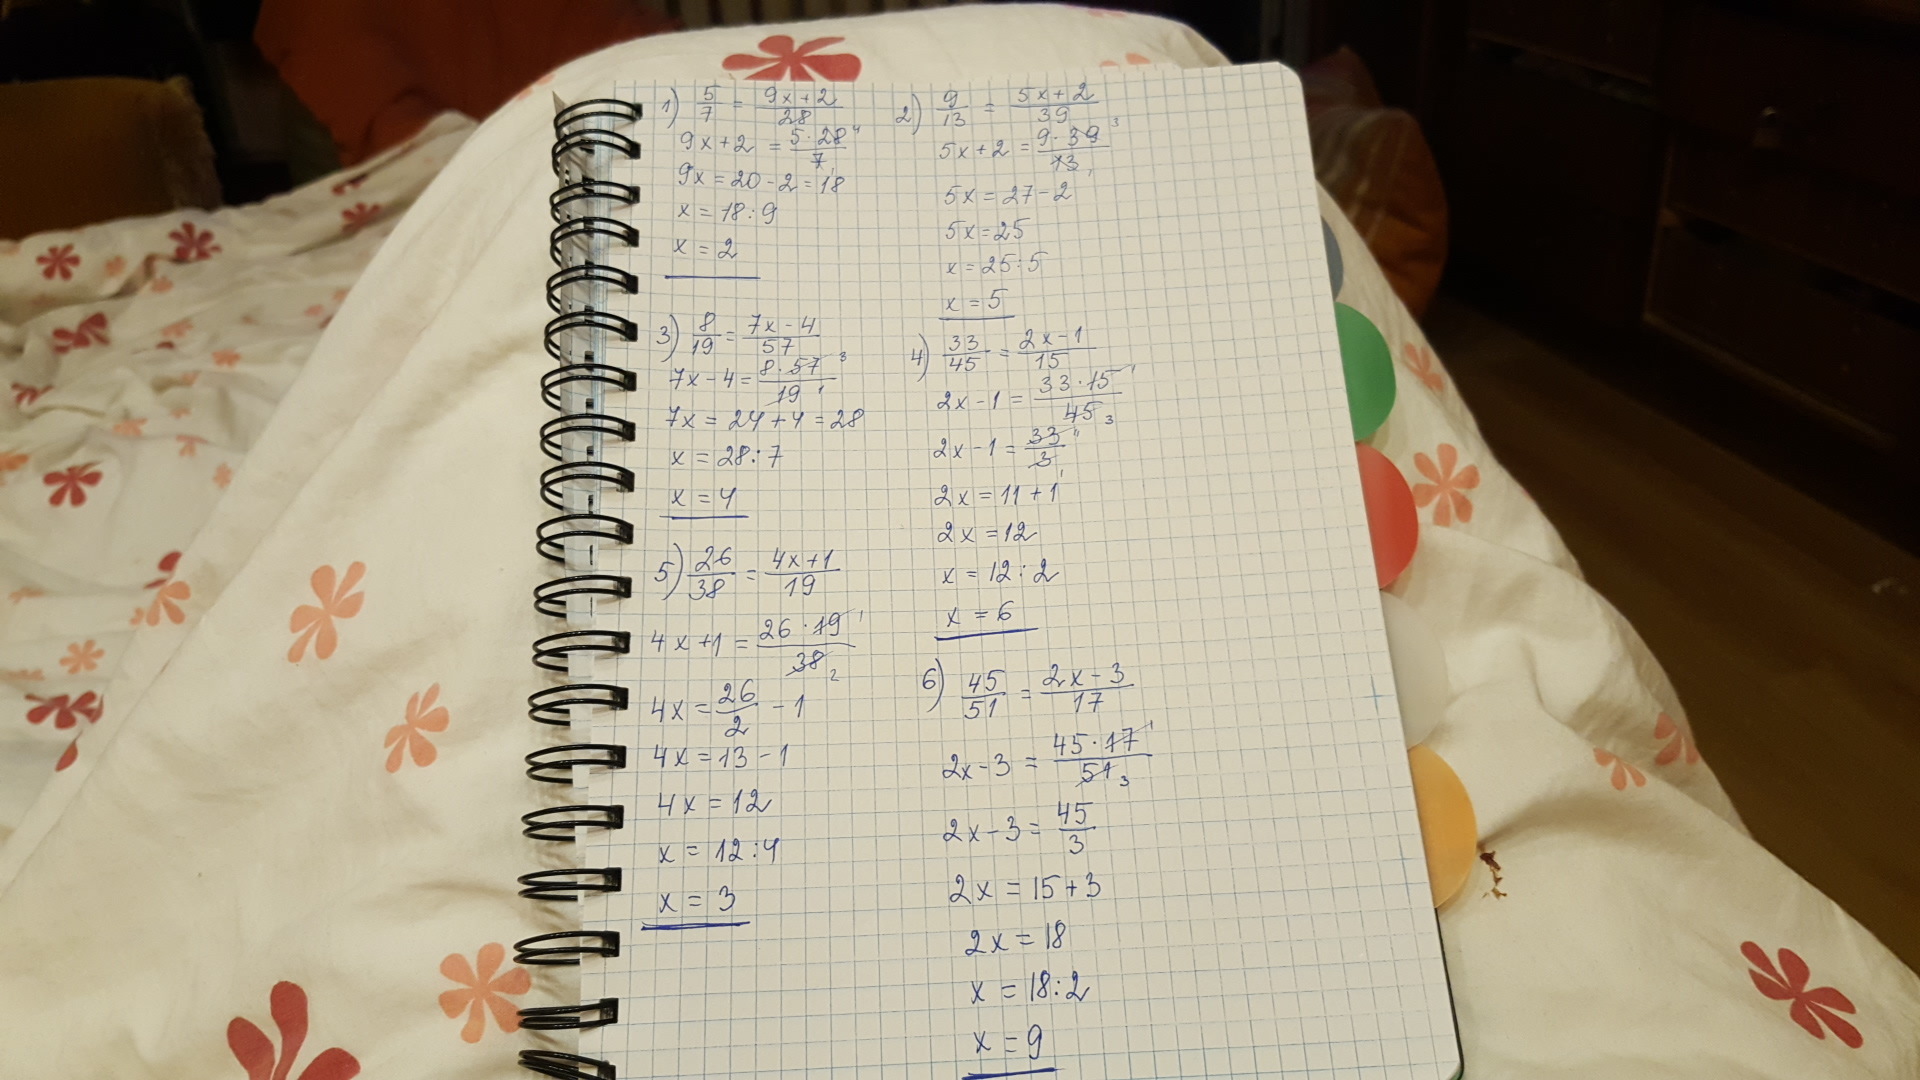 1) 5/7 = 9x+2/28
9x+2 = 5·28 4/7 1
9x = 20 - 2 = 18
x = 18:9
x = 2
2) 9/13 = 5x+2/39
5x+2 = 9·39 3/13 1
5x = 27-2
5x = 25
x = 25:5
x = 5
3) 8/19 = 7x-4/57
7x-4 = 8·57 3/19 1
7x = 24+4 = 28
x = 28:7
x = 4
4) 33/45 = 2x-1/15
2x-1 = 33·15 1/45 3
2x-1 = 33 11/3 1
2x = 11+1
2x = 12
x = 12:2
x = 6
5) 26/38 = 4x+1/19
4x+1 = 26·19 1/38 2
4x = 26/2 - 1
4x = 13-1
4x = 12
x = 12:4
x = 3
6) 45/51 = 2x-3/17
2x-3 = 45·17 1/51 3
2x-3 = 45/3
2x = 15+3
2x = 18
x = 18:2
x = 9